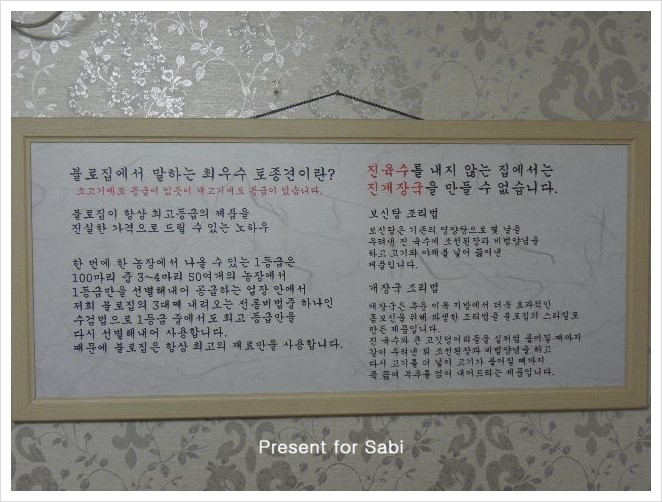 불로집에서 말하는 최우수 토종견이란?
소고기에도 등급이 있듯이 개고기에도 등급이 있습니다.
불로집이 항상 최고등급의 제품을
진실한 가격으로 드릴 수 있는 노하우
한 번에 한 농장에서 나올 수 있는 1등급은
100마리 중 3~4마리 50여개의 농장에서
1등급만을 선별해내어 공급하는 업장 안에서
저희 불로집의 3대째 내려오는 전통비법중 하나인
수검법으로 1등급 중에서도 최고 등급만을
다시 선별해내어 사용합니다.
때문에 불로집은 항상 최고의 재료만을 사용합니다.
진육수를 내지 않는 집에서는
진개장국을 만들 수 없습니다.
보신탕 조리법
보신탕은 기존의 영양탕으로 몇 날을
우려낸 진 육수에 조선된장과 비법양념을
하고 고기와 야채를 넣어 끓여낸
제품입니다.
개장국 조리법
개장국은 추운 이북 지방에서 더욱 효과적인
몸보신을 위해 파생한 조리법을 불로집의 스타일로
만든 제품입니다.
진 육수와 큰 고깃덩어리들을 실처럼 풀어질 때까지
같이 우려낸 뒤 조선된장과 비법양념을 하고
다시 고기를 더 넣어 고기가 풀어질 때까지
푹 끓여 부추를 얹어 내어드리는 제품입니다.
Present for Sabi